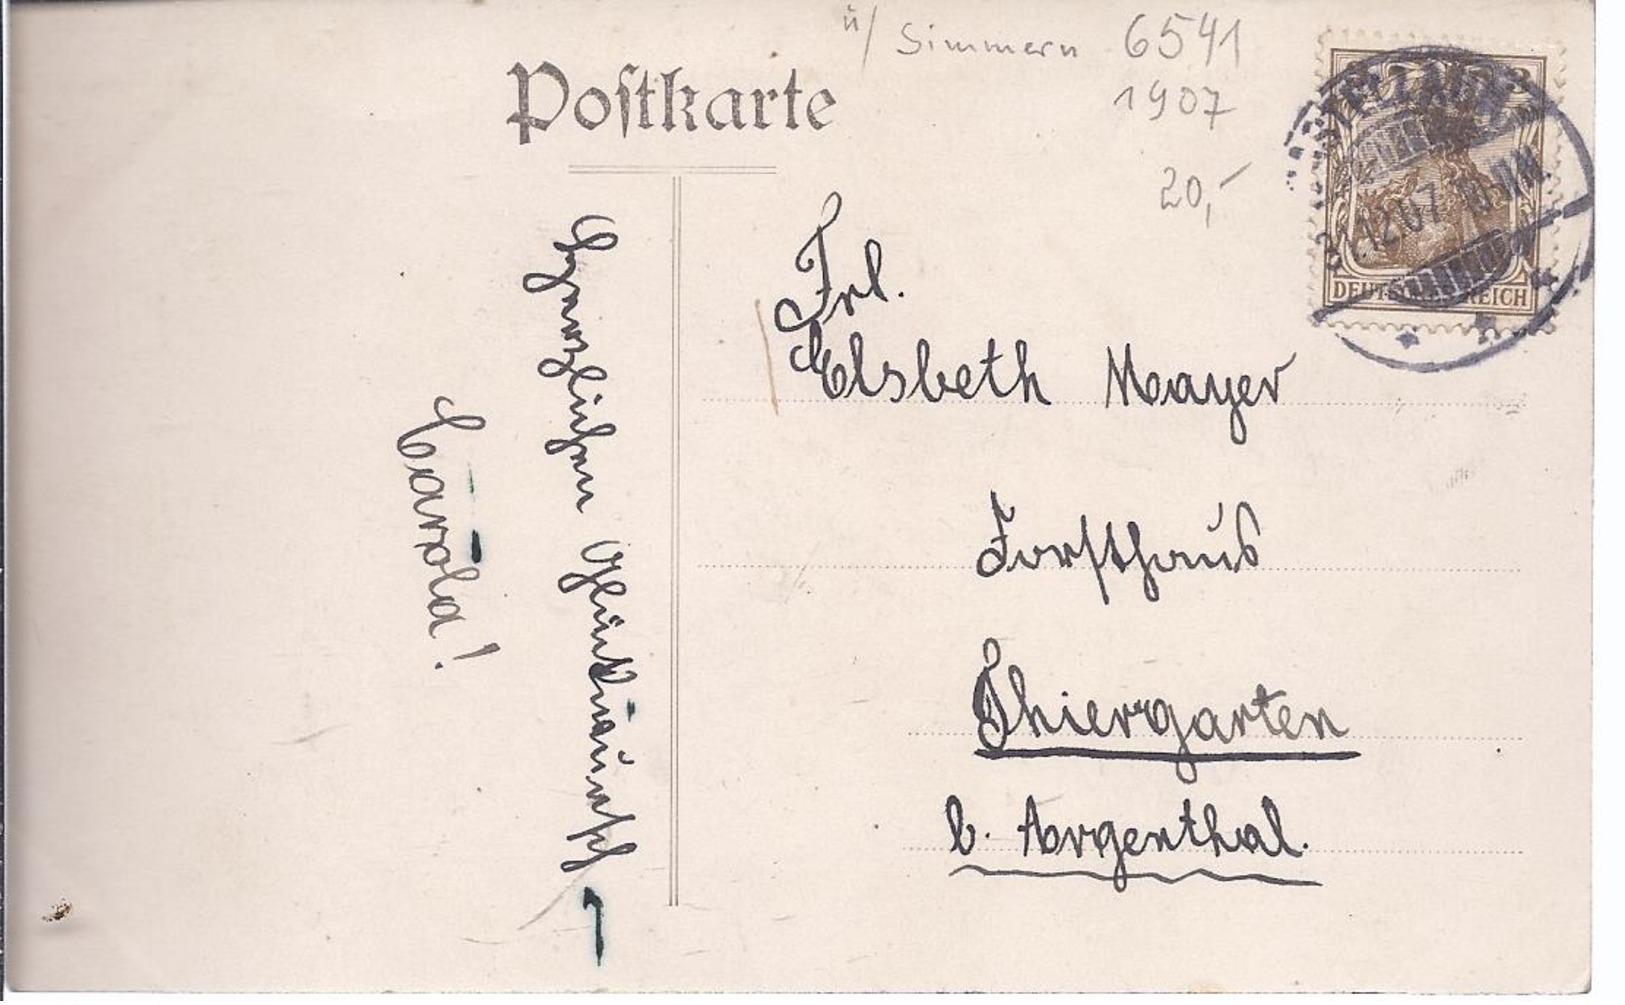 ü/ Simmern 6541
1907
20,-
Postkarte
Herzlichen Glückwunsch
Carola!
Frl.
Elsbeth Mayer
Forsthaus
Thiergarten
b. Argenthal.
12.07. 10
DEUTSCHES REICH